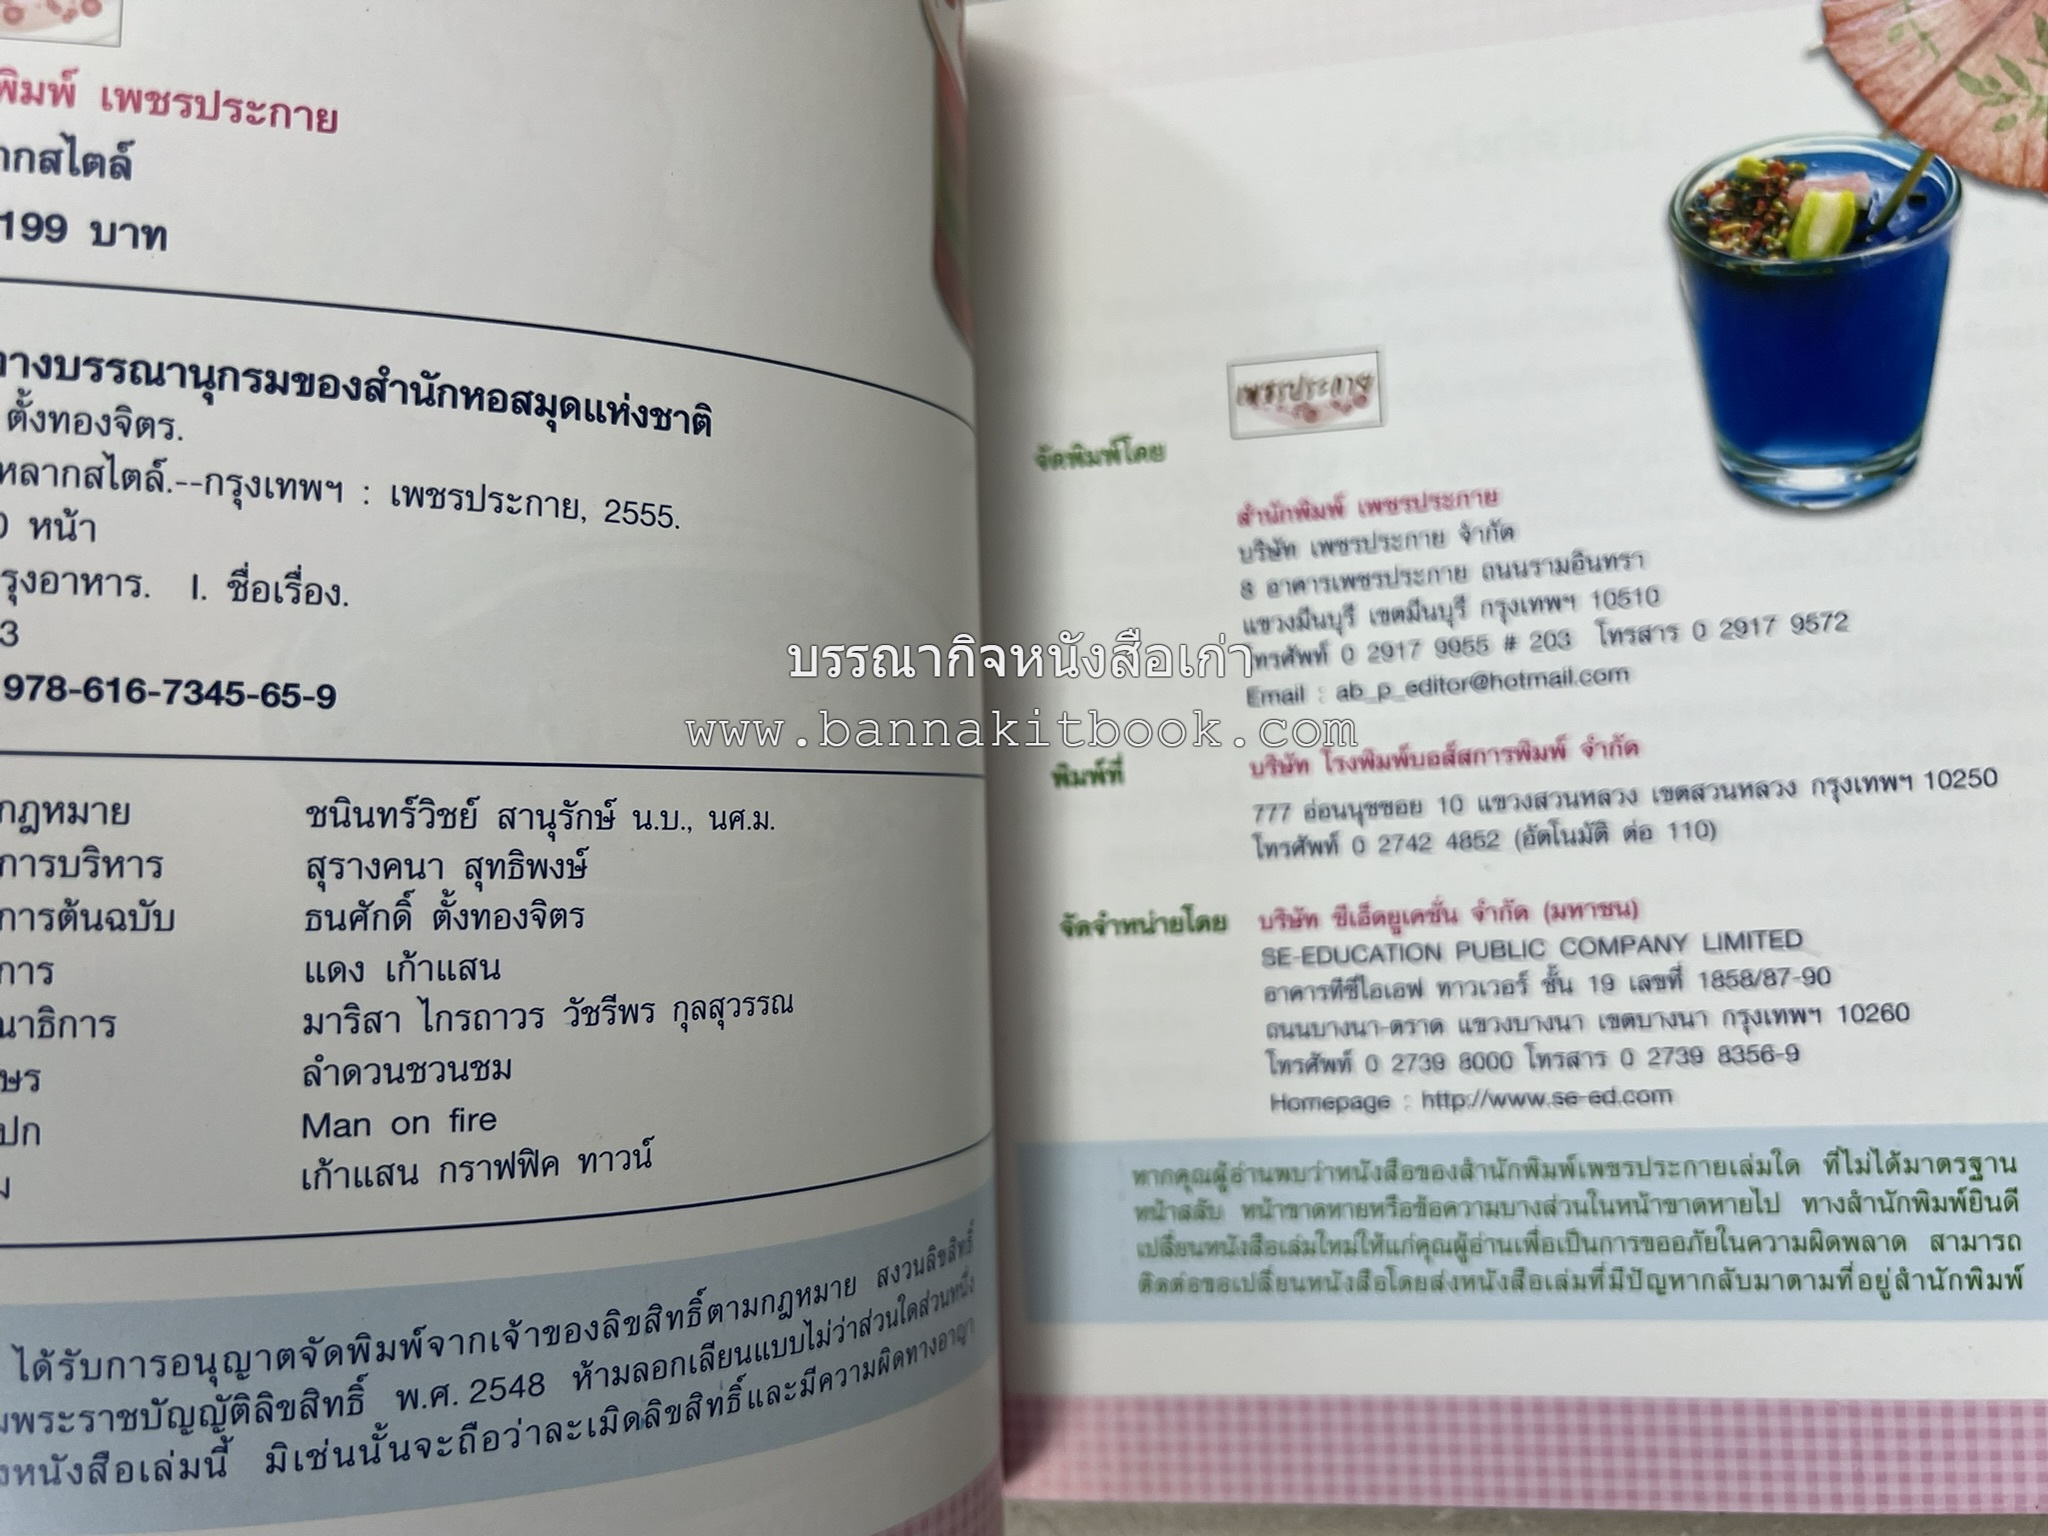 พิมพ์ เพชรประกาย
ากสไตล์
199 บาท
ทางบรรณานุกรมของสำนักหอสมุดแห่งชาติ
ตั้งทองจิตร.
หลากสไตล์.--กรุงเทพฯ : เพชรประกาย, 2555.
0 หน้า
รุงอาหาร. I. ชื่อเรื่อง.
3
978-616-7345-65-9
กฎหมาย ชนินทร์วิชย์ สานุรักษ์ น.บ., นศ.ม.
การบริหาร สุรางคนา สุทธิพงษ์
การต้นฉบับ ธนศักดิ์ ตั้งทองจิตร
การ แดง เก้าแสน
ณาธิการ มาริสา ไกรถาวร วัชรีพร กุลสุวรรณ
ษร ลำดวนชวนชม
ปก Man on fire
ม เก้าแสน กราฟฟิค ทาวน์
ได้รับการอนุญาตจัดพิมพ์จากเจ้าของลิขสิทธิ์ตามกฎหมาย สงวนลิขสิทธิ์
มพระราชบัญญัติลิขสิทธิ์ พ.ศ. 2548 ห้ามลอกเลียนแบบไม่ว่าส่วนใดส่วนหนึ่ง
งหนังสือเล่มนี้ มิเช่นนั้นจะถือว่าละเมิดลิขสิทธิ์และมีความผิดทางอาญา
เพชรประกาย
จัดพิมพ์โดย
สำนักพิมพ์ เพชรประกาย
บริษัท เพชรประกาย จำกัด
8 อาคารเพชรประกาย ถนนรามอินทรา
แขวงมีนบุรี เขตมีนบุรี กรุงเทพฯ 10510
โทรศัพท์ 0 2917 9955 # 203 โทรสาร 0 2917 9572
Email : ab_p_editor@hotmail.com
พิมพ์ที่ บริษัท โรงพิมพ์บอส์สการพิมพ์ จำกัด
777 อ่อนนุชซอย 10 แขวงสวนหลวง เขตสวนหลวง กรุงเทพฯ 10250
โทรศัพท์ 0 2742 4852 (อัตโนมัติ ต่อ 110)
จัดจำหน่ายโดย บริษัท ซีเอ็ดยูเคชั่น จำกัด (มหาชน)
SE-EDUCATION PUBLIC COMPANY LIMITED
อาคารทีซีไอเอฟ ทาวเวอร์ ชั้น 19 เลขที่ 1858/87-90
ถนนบางนา-ตราด แขวงบางนา เขตบางนา กรุงเทพฯ 10260
โทรศัพท์ 0 2739 8000 โทรสาร 0 2739 8356-9
Homepage : http://www.se-ed.com
หากคุณผู้อ่านพบว่าหนังสือของสำนักพิมพ์เพชรประกายเล่มใด ที่ไม่ได้มาตรฐาน
หน้าสลับ หน้าขาดหายหรือข้อความบางส่วนในหน้าขาดหายไป ทางสำนักพิมพ์ยินดี
เปลี่ยนหนังสือเล่มใหม่ให้แก่คุณผู้อ่านเพื่อเป็นการขออภัยในความผิดพลาด สามารถ
ติดต่อขอเปลี่ยนหนังสือโดยส่งหนังสือเล่มที่มีปัญหากลับมาตามที่อยู่สำนักพิมพ์
บรรณากิจหนังสือเก่า
www.bannakitbook.com